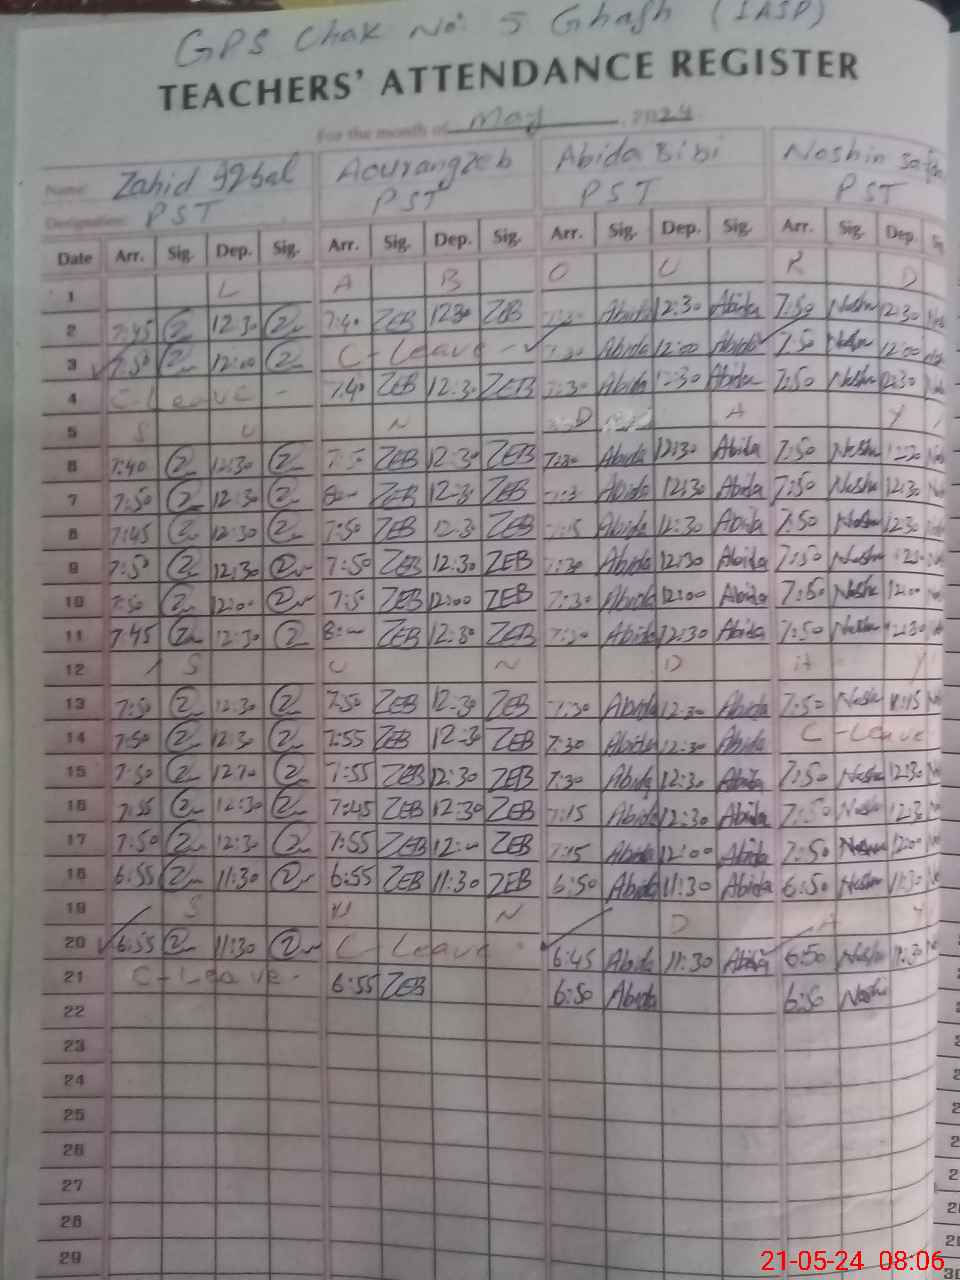 GPS Chak No: 5 Ghagh (IASP)
TEACHERS' ATTENDANCE REGISTER
For the month of May 2024
Name: Zahid Iqbal Aourangzeb Abida Bibi Noshin
Designation: PST PST PST PST
Date Arr. Sig. Dep. Sig. Arr. Sig. Dep. Sig. Arr. Sig. Dep. Sig. Arr. Sig. Dep.
1 L A B O U R D
2 7:45 12:30 7:40 ZEB 12:30 ZEB Abida 12:30 Abida 7:50 Nosha 12:30
3 7:50 12:00 C-Leave - 7:30 Abida 12:00 Abida 7:50 Nosha 12:00
4 C-Leave - 7:40 ZEB 12:30 ZEB 7:30 Abida 12:30 Abida 7:50 Nosha 12:30
5 S U N D A Y
6 7:40 12:30 7:50 ZEB 12:30 ZEB 7:30 Abida 12:30 Abida 7:50 Nosha 12:30
7 7:50 12:30 8:00 ZEB 12:30 ZEB 7:30 Abida 12:30 Abida 7:50 Nosha 12:30
8 7:45 12:30 7:50 ZEB 12:30 ZEB 7:15 Abida 12:30 Abida 7:50 Nosha 12:30
9 7:50 12:30 7:50 ZEB 12:30 ZEB 7:30 Abida 12:30 Abida 7:50 Nosha 12:30
10 7:50 12:00 7:50 ZEB 12:00 ZEB 7:30 Abida 12:00 Abida 7:50 Nosha 12:00
11 7:45 12:30 8:00 ZEB 12:30 ZEB 7:30 Abida 12:30 Abida 7:50 Nosha 12:30
12 S U N D A Y
13 7:50 12:30 7:50 ZEB 12:30 ZEB 7:30 Abida 12:30 Abida 7:50 Nosha 11:15
14 7:50 12:30 7:55 ZEB 12:30 ZEB 7:30 Abida 12:30 Abida C-Leave
15 7:50 12:30 7:55 ZEB 12:30 ZEB 7:30 Abida 12:30 Abida 7:50 Nosha 12:30
16 7:55 12:30 7:45 ZEB 12:30 ZEB 7:15 Abida 12:30 Abida 7:50 Nosha 12:30
17 7:50 12:30 7:55 ZEB 12:00 ZEB 7:15 Abida 12:00 Abida 7:50 Nosha 12:00
18 6:55 11:30 6:55 ZEB 11:30 ZEB 6:50 Abida 11:30 Abida 6:50 Nosha 11:30
19 S U N D A Y
20 6:55 11:30 C Leave 6:45 Abida 11:30 Abida 6:50 Nosha 11:30
21 C-Leave - 6:55 ZEB 6:50 Abida 6:50 Nosha
22
23
24
25
26
27
28
29
21-05-24 08:06